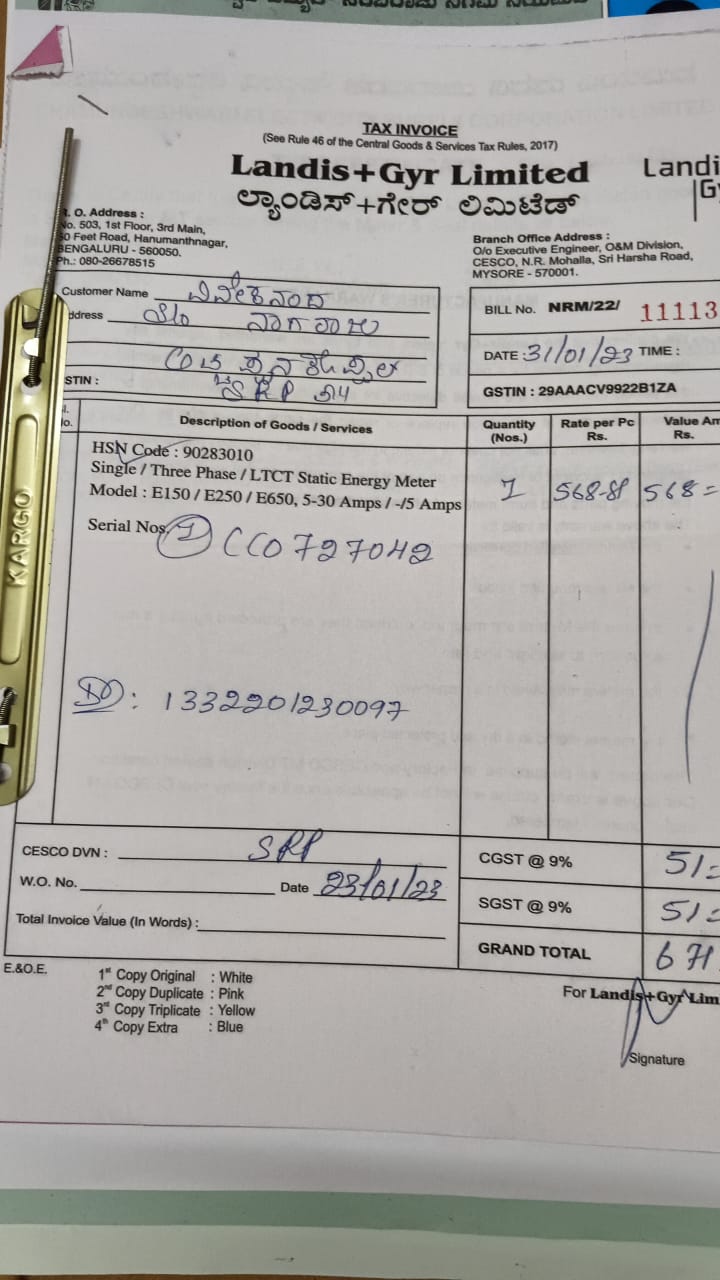 TAX INVOICE
(See Rule 46 of the Central Goods & Services Tax Rules, 2017)
Landis+Gyr Limited
ಲ್ಯಾಂಡಿಸ್+ಗೇರ್ ಲಿಮಿಟೆಡ್
Landi
G
R. O. Address :
No. 503, 1st Floor, 3rd Main,
0 Feet Road, Hanumanthnagar,
BENGALURU - 560050.
Ph.: 080-26678515
Branch Office Address :
O/o Executive Engineer, O&M Division,
CESCO, N.R. Mohalla, Sri Harsha Road,
MYSORE - 570001.
Customer Name ವಿವೇಕನಂದ
ddress S/o ನಾಗರಾಜು
STIN : SRP
BILL No. NRM/22/ 11113
DATE : 31/01/23 TIME :
GSTIN : 29AAACV9922B1ZA
l. No. Description of Goods / Services Quantity (Nos.) Rate per Pc Rs. Value Am Rs.
HSN Code : 90283010
Single / Three Phase / LTCT Static Energy Meter
Model : E150 / E250 / E650, 5-30 Amps / -/5 Amps 1 568-81 568=
Serial Nos. 1 CC0727042
DO: 1332201230097
CESCO DVN : SRP
W.O. No. Date 23/01/23
Total Invoice Value (In Words) :
CGST @ 9% 51=
SGST @ 9% 51=
GRAND TOTAL 671
E.&O.E.
1st Copy Original : White
2nd Copy Duplicate : Pink
3rd Copy Triplicate : Yellow
4th Copy Extra : Blue
For Landis+Gyr Lim
Signature
KARGO